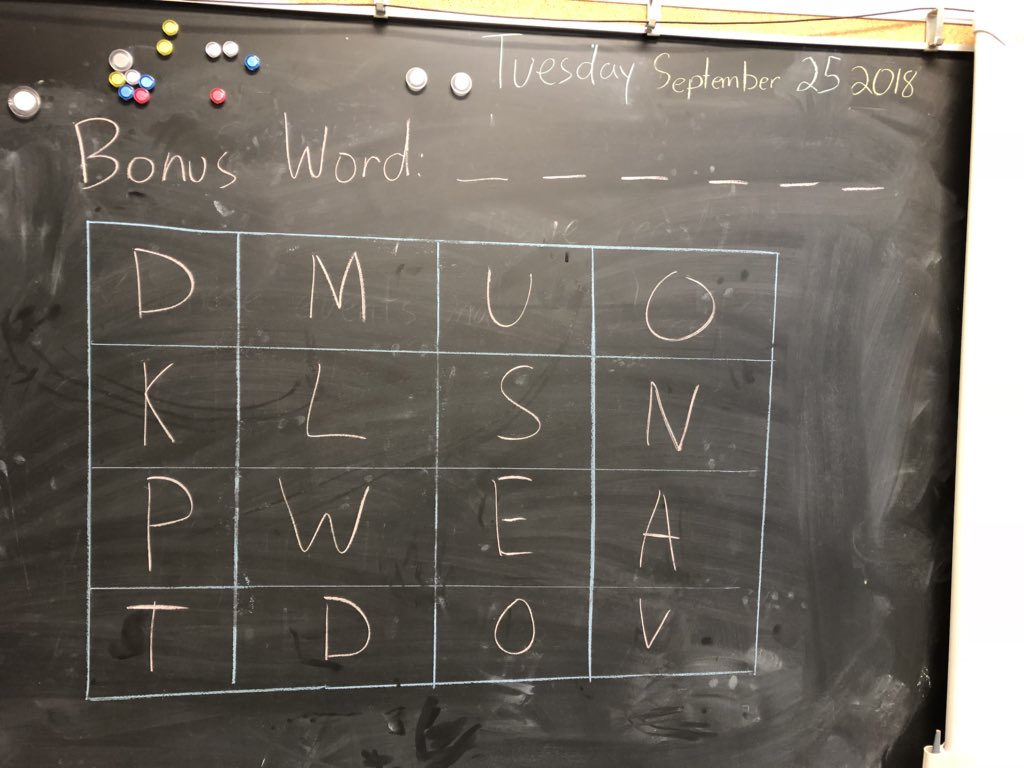 Tuesday September 25 2018
Bonus Word: _ _ _ _ _ _
D M U O
K L S N
P W E A
T D O V